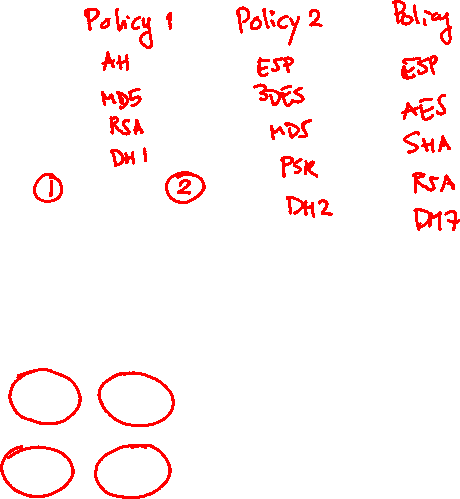 Policy 1
AH
MD5
RSA
DH1
Policy 2
ESP
3DES
MD5
PSK
DH2
Policy
ESP
AES
SHA
RSA
DH7
1
2